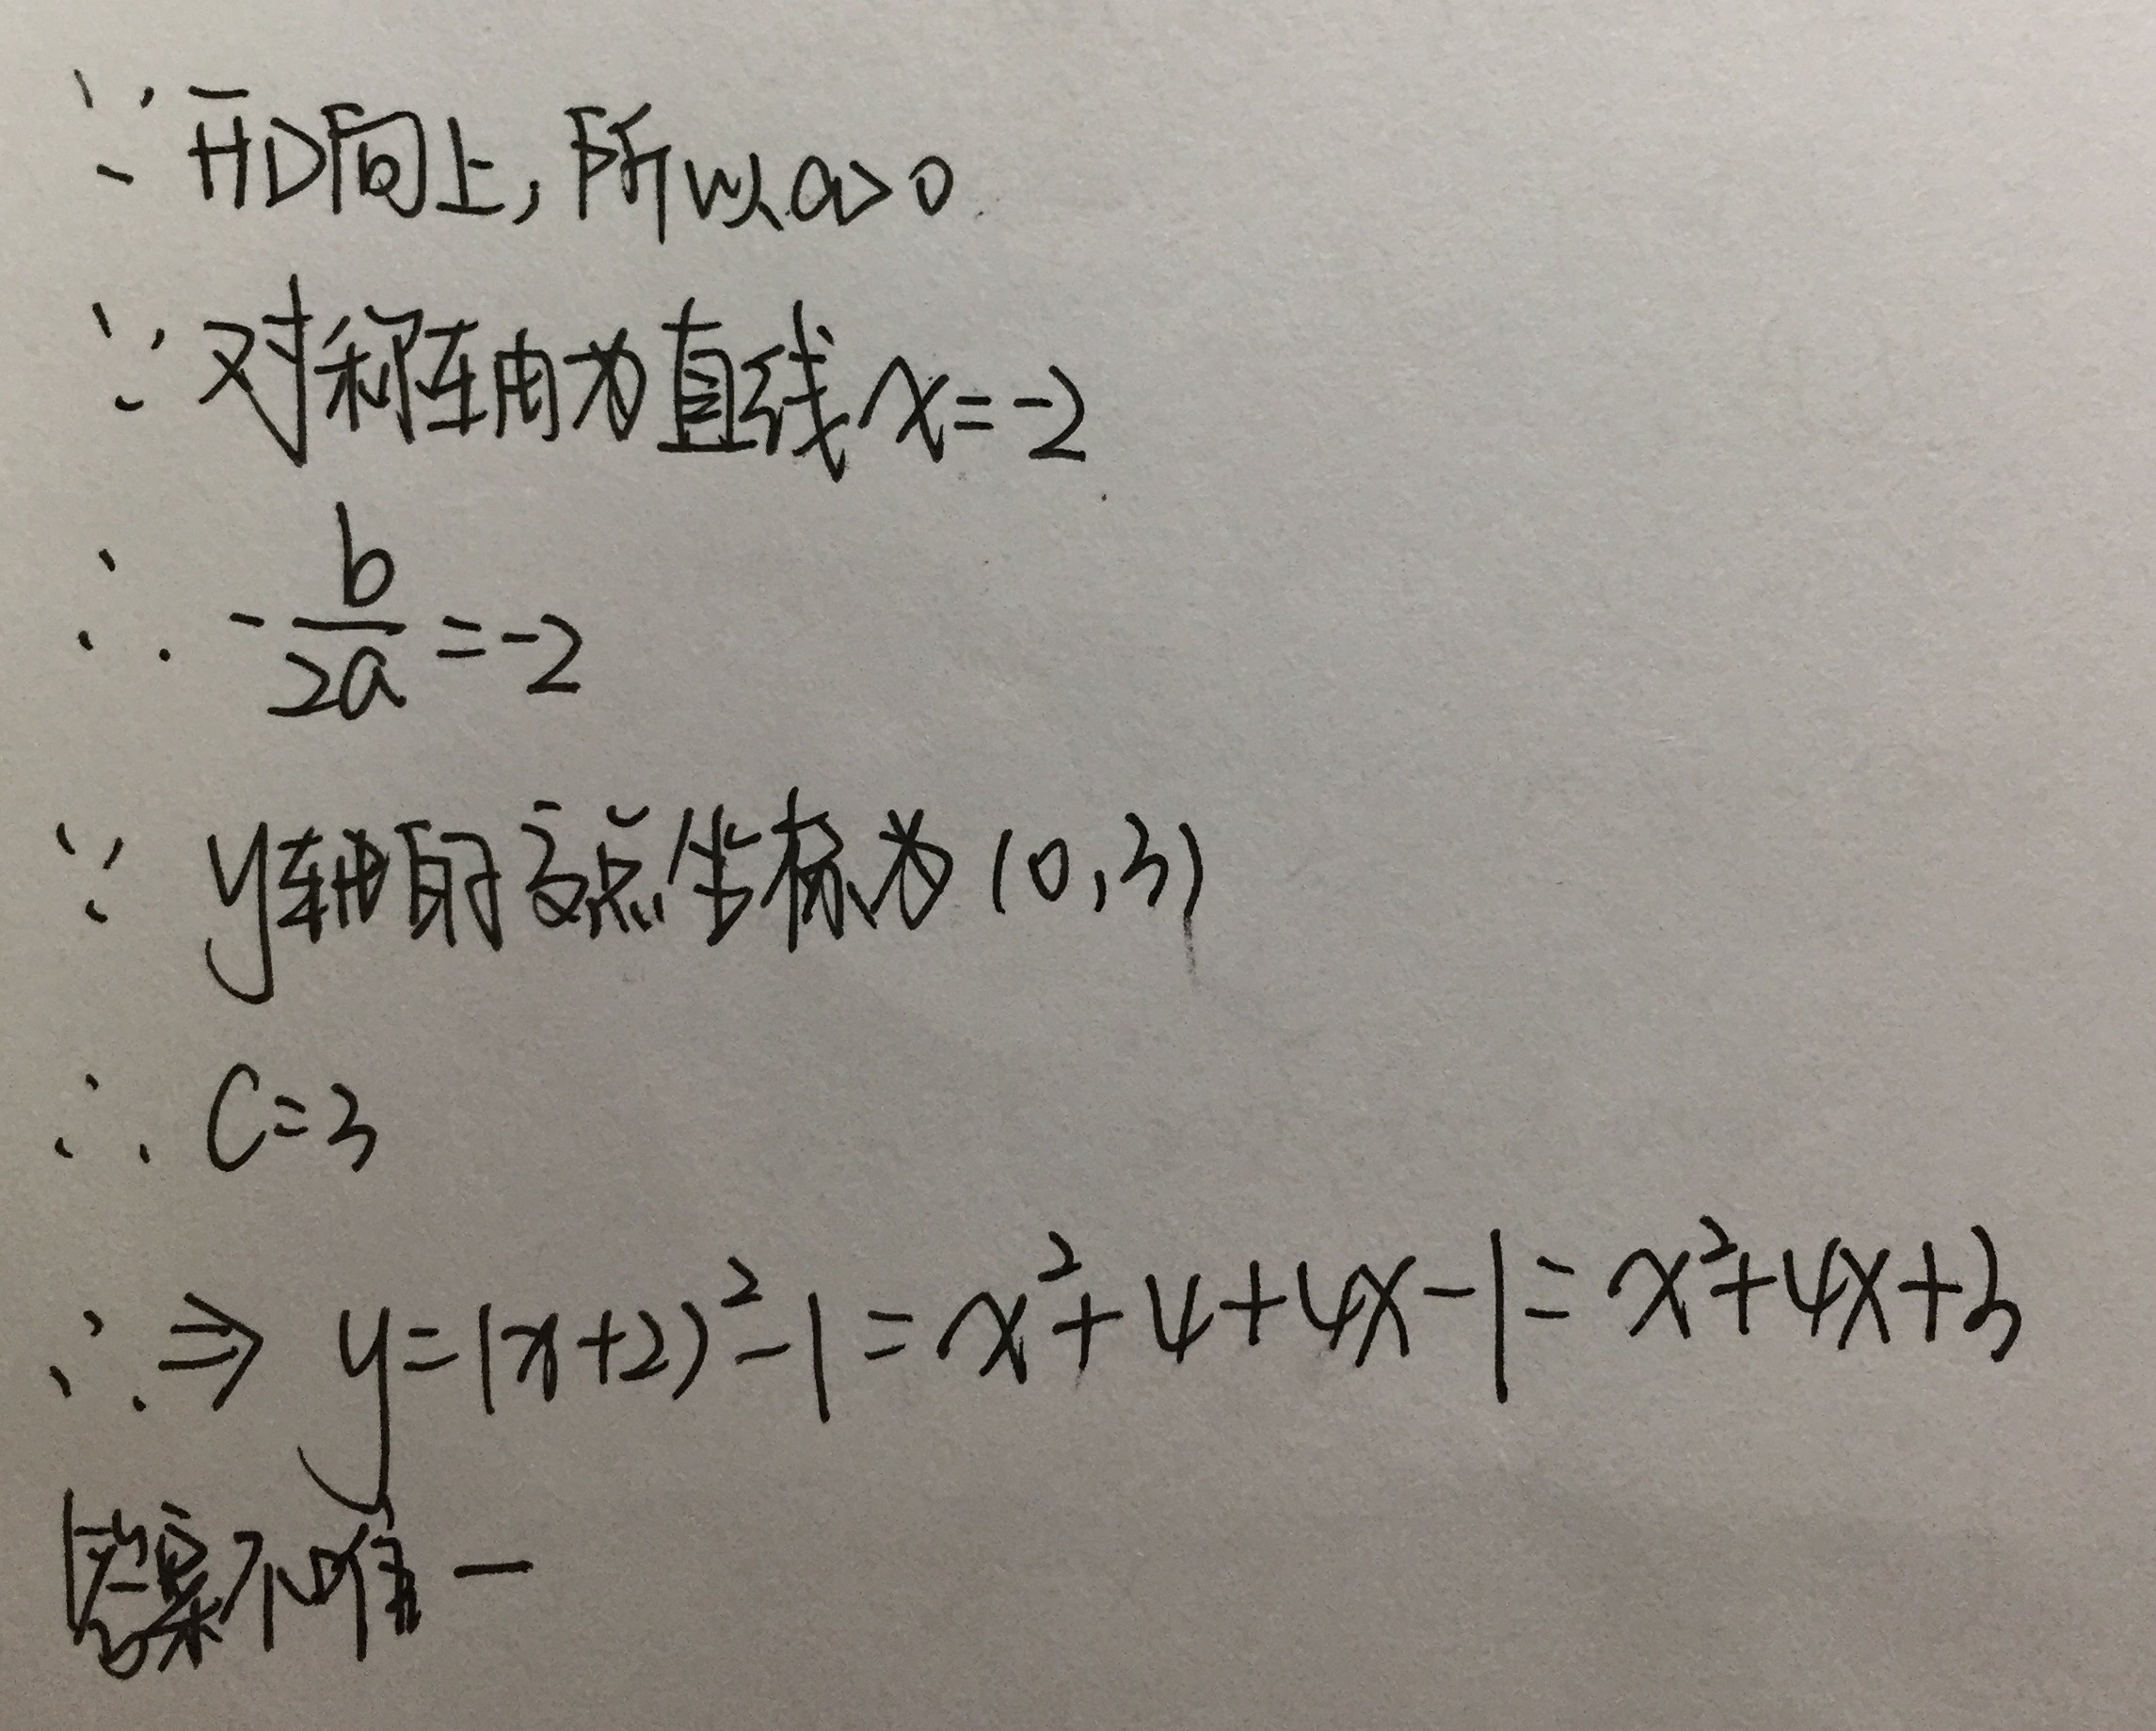 ∵开口向上,所以a>0
∵对称轴为直线x=-2
∴ -b/2a=-2
∵ y轴的交点坐标为(0,3)
∴ C=3
∴ ⇒ y=(x+2)²-1=x²+4+4x-1=x²+4x+3
答案不唯一